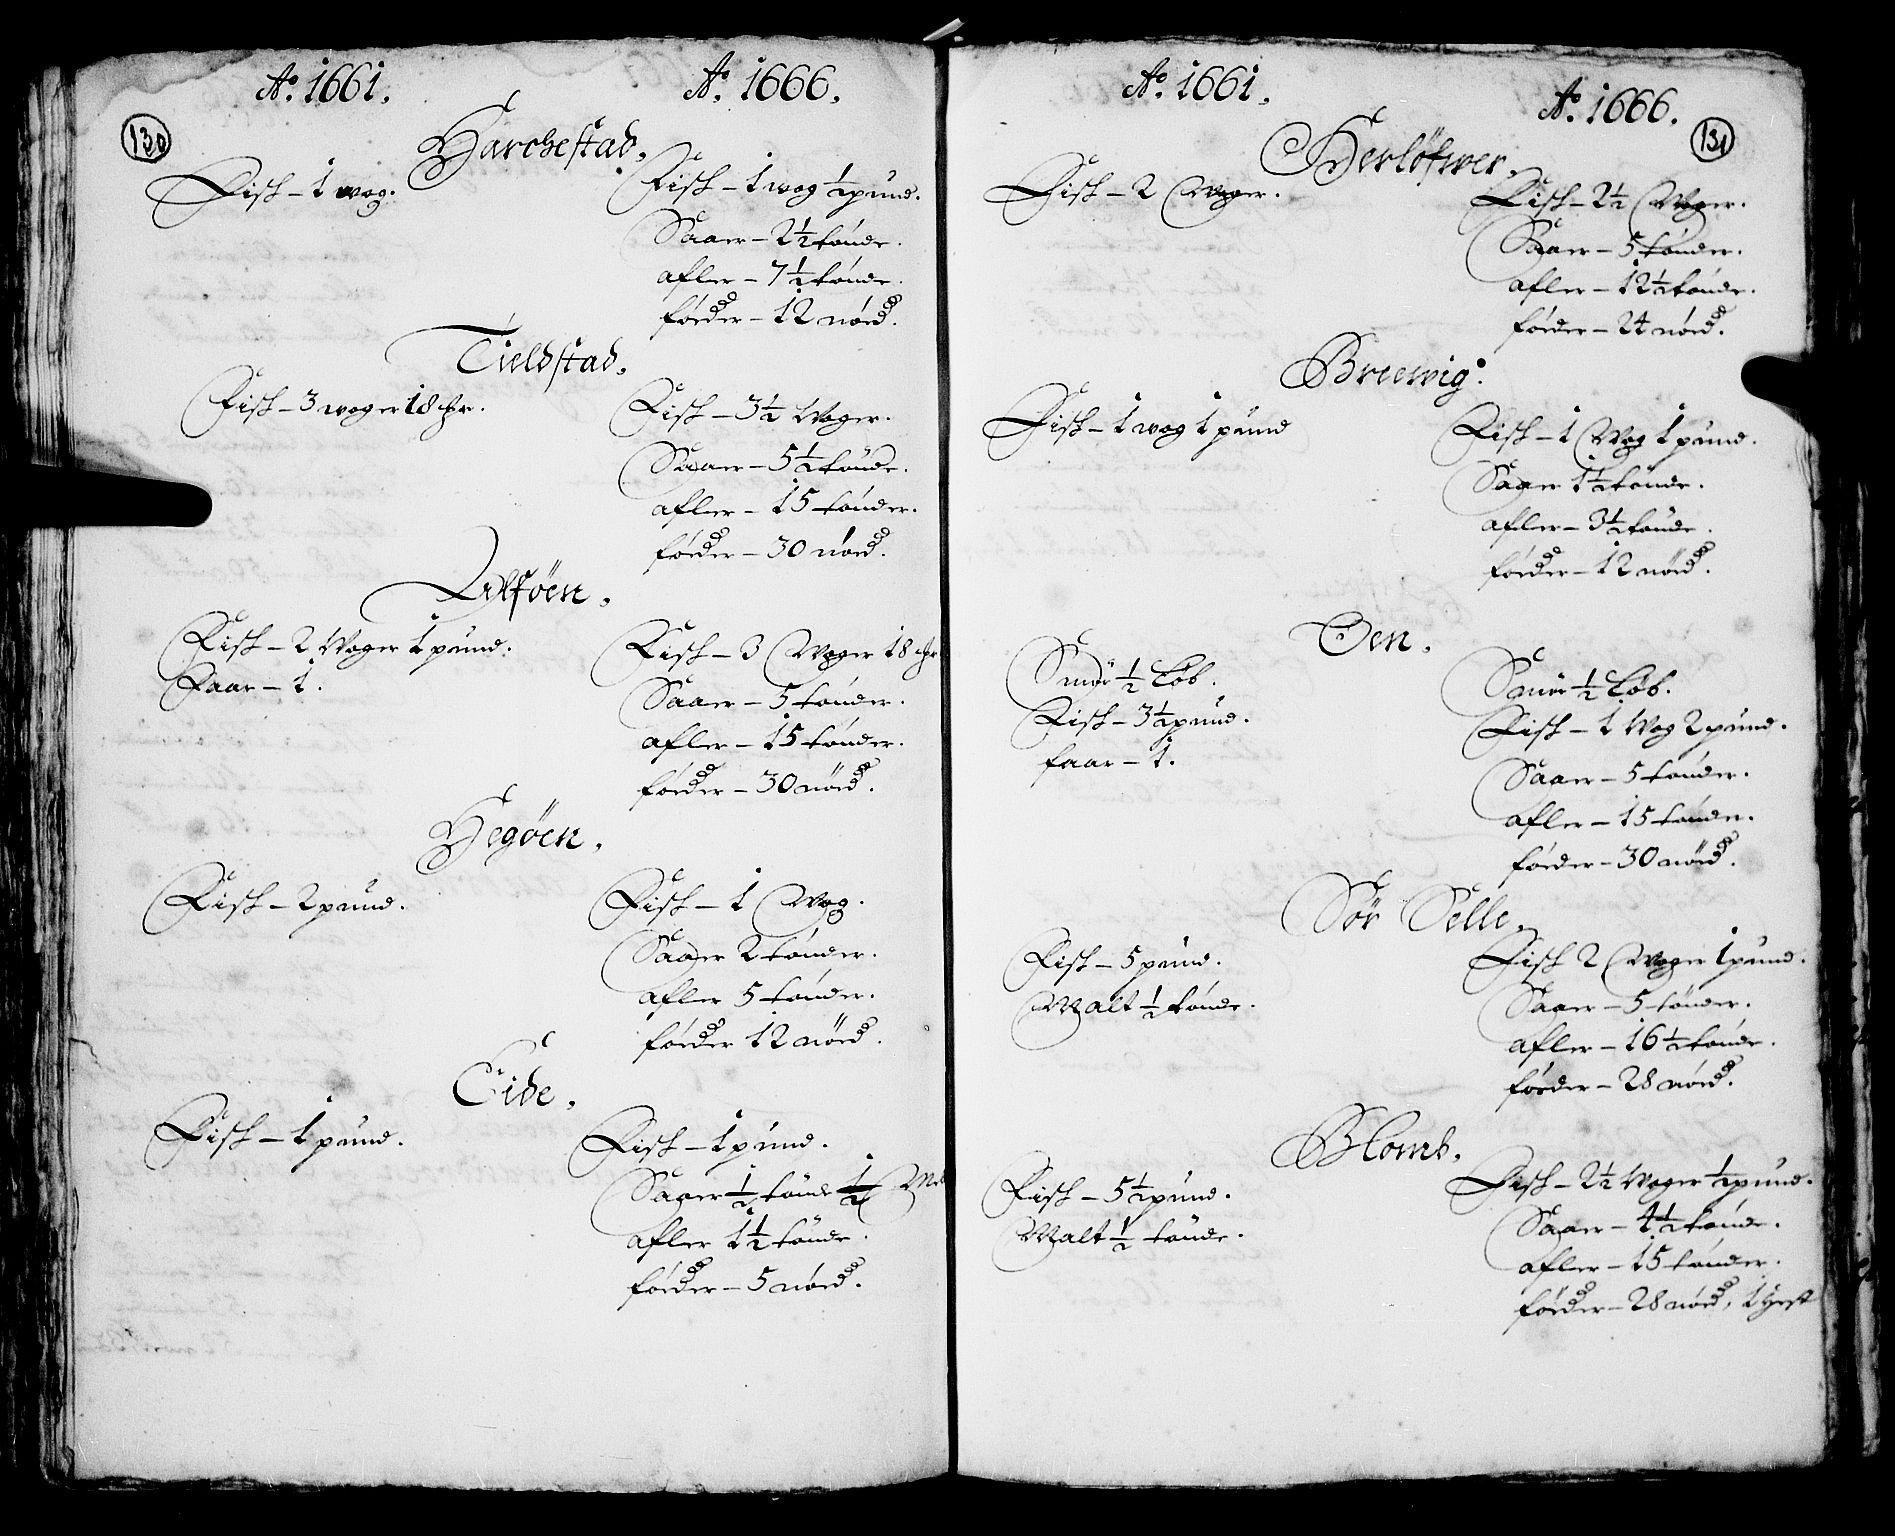 130
Ao. 1661. Ao. 1666.
Harchestad.
Fisk – 1 wog. Fisk – 1 wog ½ pund.
Saaer – 2½ tønde.
afler – 7½ tønde.
føder – 12 nød.
Tieldstad.
Fisk – 3 woger 18 Fisk – 3½ Woger.
Saaer – 5½ tønde.
afler – 15 tønder.
føder – 30 nød.
Ulföen.
Fisk – 2 Woger 1 pund. Fisk – 3 Woger 18
Faar – 1. Saaer – 5 tønder.
afler – 15 tønder.
føder – 30 nød.
Hegöen.
Fisk – 2 pund. Fisk – 1 Wog.
Saaer 2 tønder.
afler 5 tønder.
føder 12 nød.
Eide.
Fisk – 1 pund. Fisk – 1 pund.
Saaer ½ tønde ½
afler 1½ tønde.
føder – 5 nød.
131
Ao. 1661. Ao. 1666.
Herløfswer.
Fisk – 2 Woger. Fisk – 2½ Woger.
Saaer – 5 tønder.
afler – 12½ tønde.
føder – 24 nød.
Breewig.
Fisk – 1 wog 1 pund Fisk – 1 Wog 1 pund.
Saaer 1½ tønde.
afler – 3½ tønde.
føder – 12 nød.
Öen.
Smör ½ Løb. Smör ½ Løb.
Fisk – 3½ pund. Fisk – 1 Wog 2 pund.
faar – 1. Saaer – 5 tønder.
afler – 15 tønder.
føder – 30 nød.
Sör Selle.
Fisk – 5 pund. Fisk 2 Woger 1 pund.
Malt ½ tønde. Saaer – 5 tønder.
afler – 16½ tønde.
føder – 28 nød.
Blomb.
Fisk – 5½ pund. Fisk – 2½ Woger ½ pund.
Malt ½ tønde. Saaer – 4½ tønde.
afler – 15 tønder.
føder – 28 nød, 1 Hest